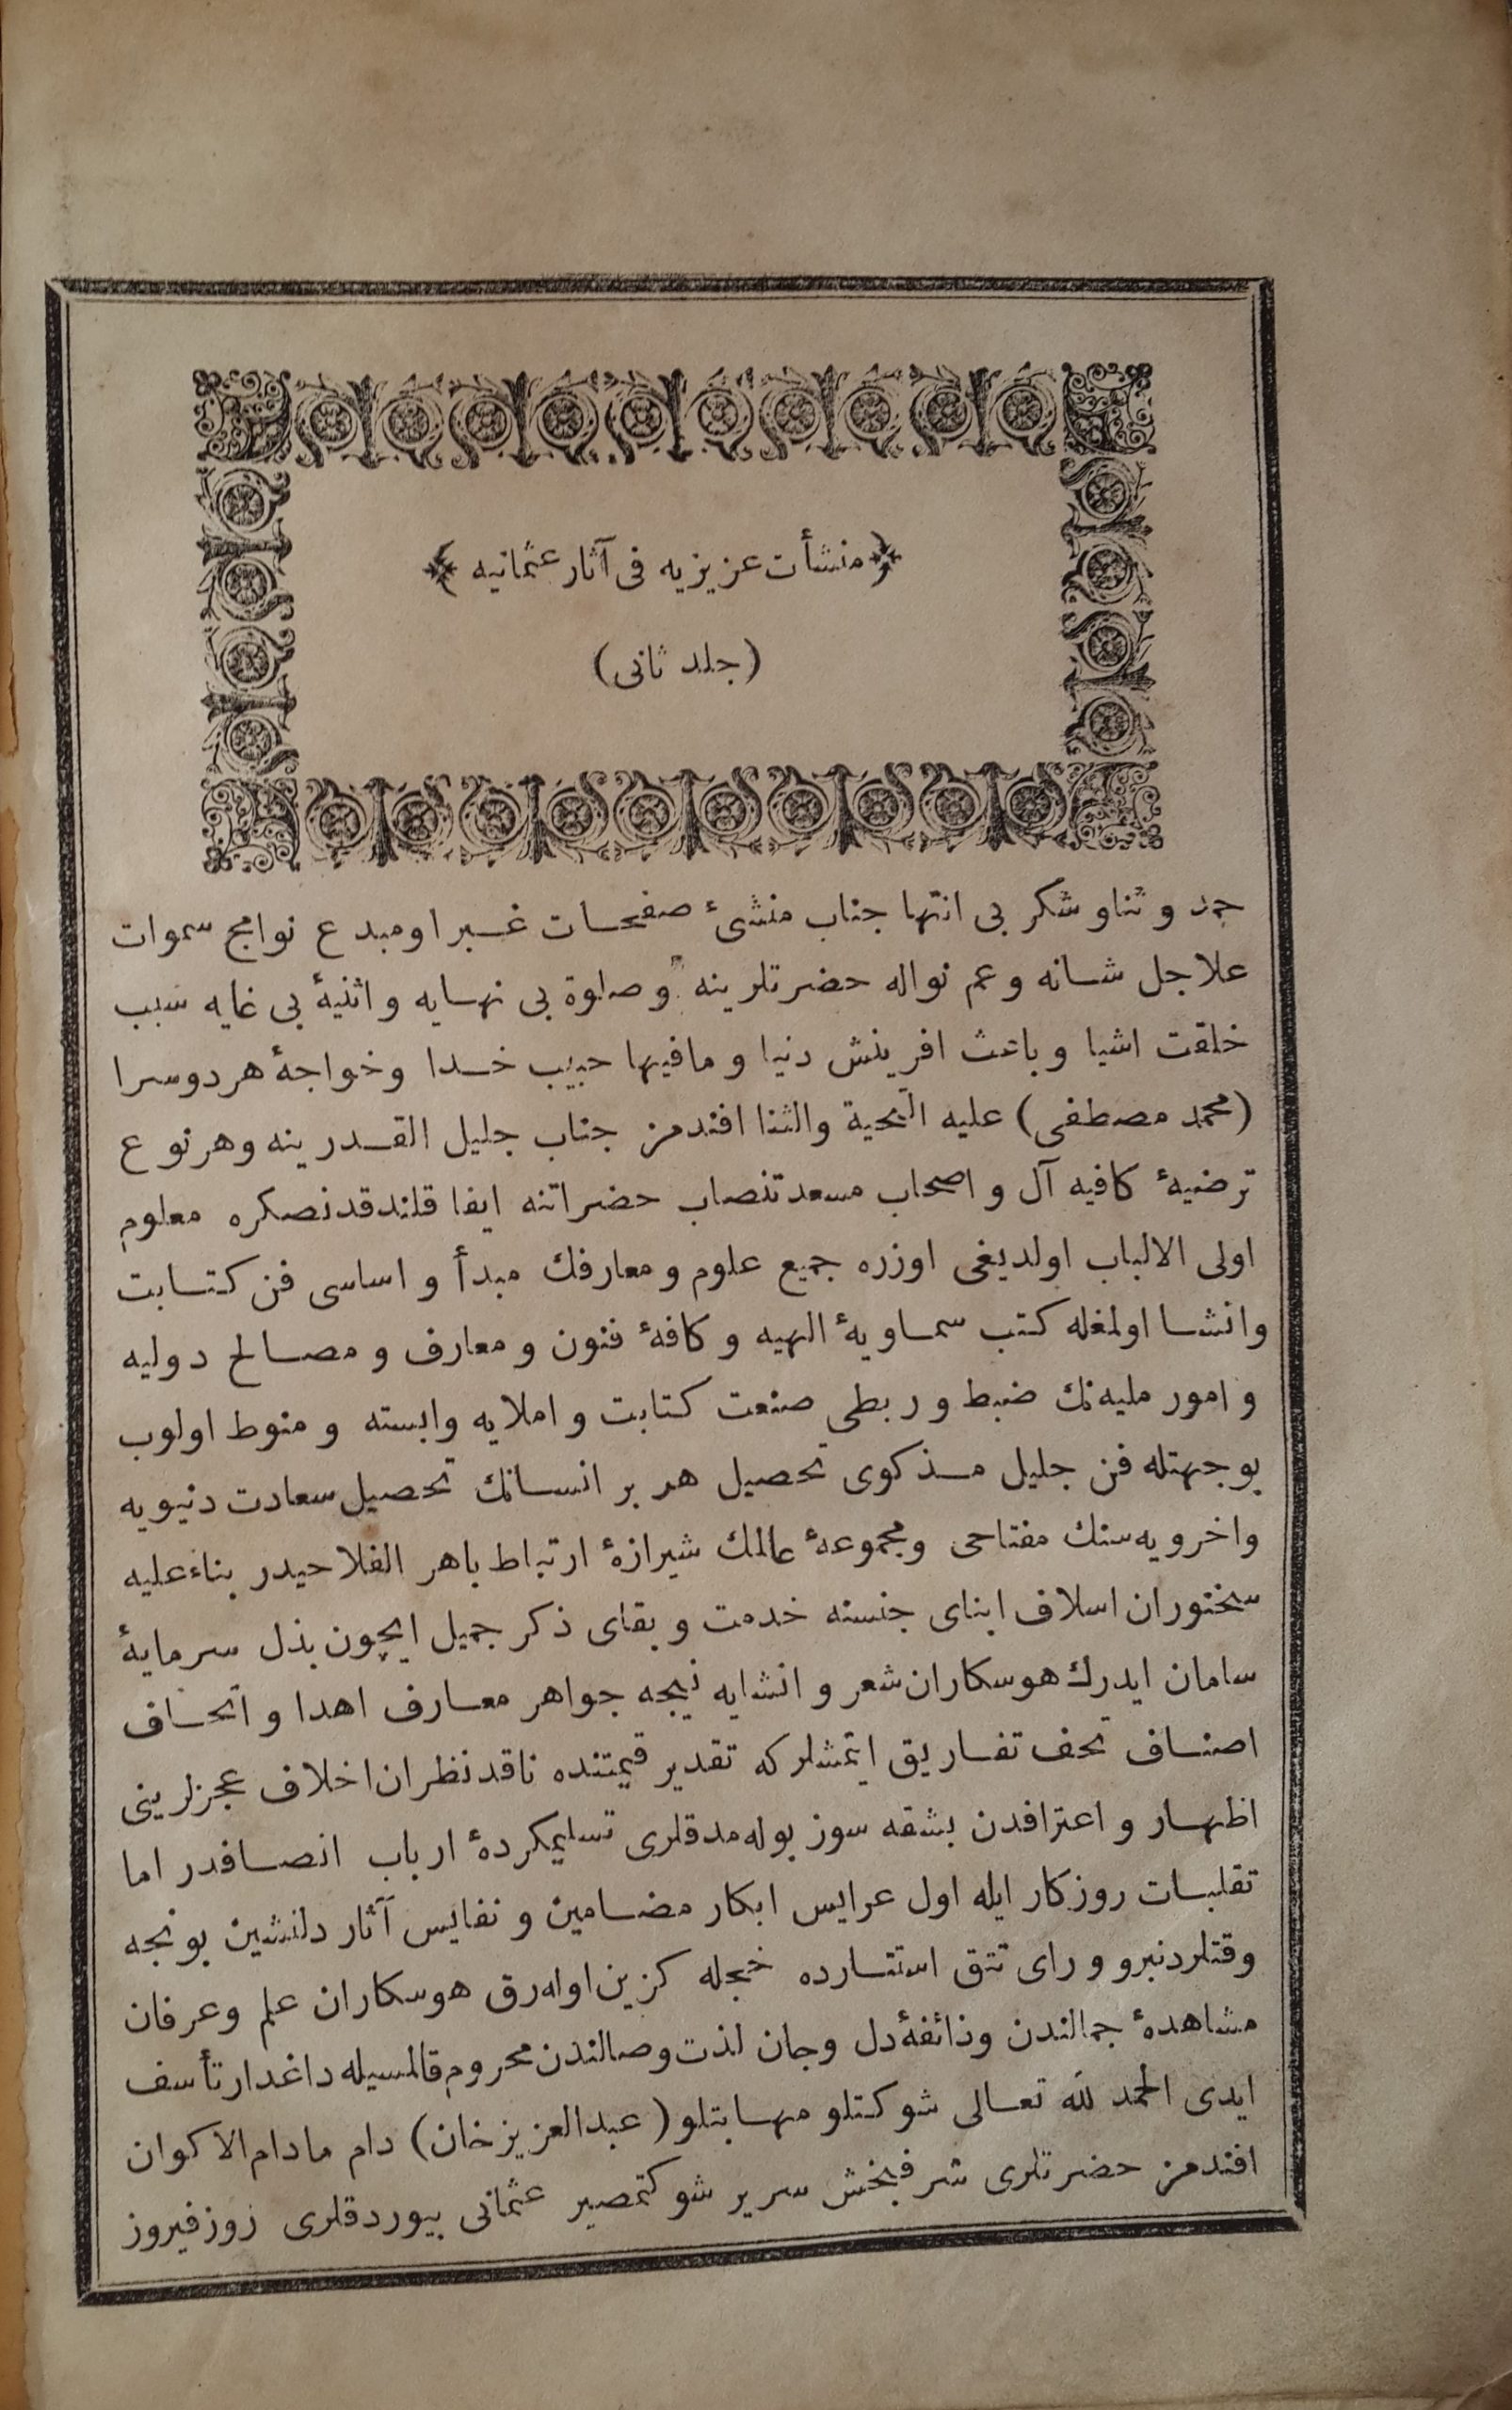 ﴿ منشأت عزیزیه فی آثار عثمانیه ﴾
(جلد ثانی)
حمد و ثنا و شکر بی انتها جناب منشیٔ صفحات غبرا و مبدع نوامح سموات
علا جل شانه وعم نواله حضرتلرینه و صلوة بی نهایه و اثنیهٔ بی غایه سبب
خلقت اشیا و باعث افرینش دنیا و مافیها حبیب خدا و خواجهٔ هر دوسرا
(محمد مصطفی) علیه التحیة والثنا افندمز جناب جلیل القدرینه وهر نوع
ترضیهٔ کافیه آل و اصحاب مسعدتنصاب حضراتنه ایفا قلندقدنصکره معلوم
اولی الالباب اولدیغی اوزره جمیع علوم و معارفك مبدأ و اساسی فن کتابت
وانشا اولمغله کتب سماویهٔ الهیه و کافهٔ فنون و معارف و مصالح دولیه
و امور ملیه‌نك ضبط و ربطی صنعت کتابت و املایه وابسته و منوط اولوب
بوجهتله فن جلیل مذکوی تحصیل هر بر انسانك تحصیل سعادت دنیویه
واخرویه‌سنك مفتاحی ومجموعهٔ عالمك شیرازهٔ ارتباط باهر الفلاحیدر بناءعلیه
سخنوران اسلاف ابنای جنسنه خدمت و بقای ذکر جمیل ایچون بذل سرمایهٔ
سامان ایدرك هوسکاران شعر و انشایه نیجه جواهر معارف اهدا و اتحاف
اصناف تحف تفاریق ایتمشلرکه تقدیر قیمتنده ناقد نظران اخلاف عجزلرینی
اظهار و اعترافدن بشقه سوز بوله‌مدقلری تسلیمکردهٔ ارباب انصافدر اما
تقلبات روزکار ایله اول عرایس ابکار مضامین و نفایس آثار دلنشین بونجه
وقتلردنبرو ورای تتق استتارده حجله کزین اوله‌رق هوسکاران علم وعرفان
مشاهدهٔ جمالندن وذائقهٔ دل وجان لذت وصالندن محروم قالمسیله داغدار تأسف
ایدی الحمد لله تعالی شوکتلو مهابتلو (عبدالعزیزخان) دام مادام الاکوان
افندمز حضرتلری شرفبخش سریر شوکتمصیر عثمانی بیوردقلری روز فیروز